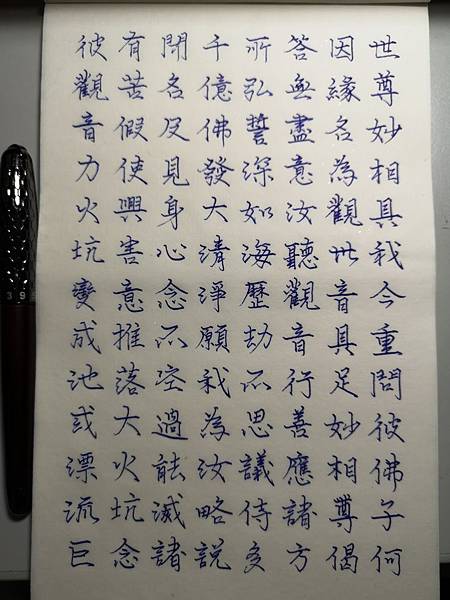 世尊妙相具我今重問彼佛子何
因緣名為觀世音具足妙相尊偈
答無盡意汝聽觀音行善應諸方
所弘誓深如海歷劫不思議侍多
千億佛發大清淨願我為汝略說
聞名及見身心念不空過能滅諸
有苦假使興害意推落大火坑念
彼觀音力火坑變成池或漂流巨